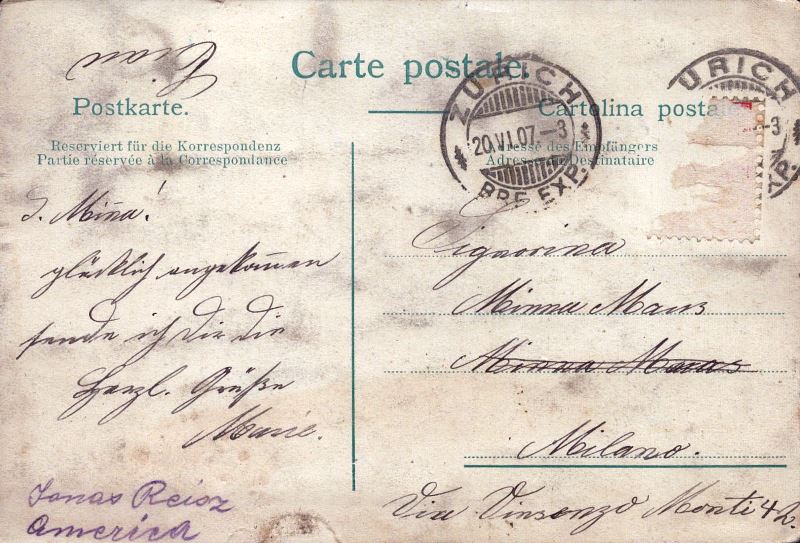 Carte postale.
Postkarte.
Cartolina posta
Reserviert für die Korrespondenz
Partie réservée à la Correspondance
Adresse des Empfängers
Adresse du Destinataire
ZÜRICH
20.VI.07.-3
BRF.EXP.
URICH
-3
XP.
L. Miña!
glücklich angekommen
sende ich Dir die
Herzl. Grüße
Marie.
Jonas Reisz
America
Signorina
Minna Maus
Minna Maras
Milano.
Via Vinsenzo Monti 42